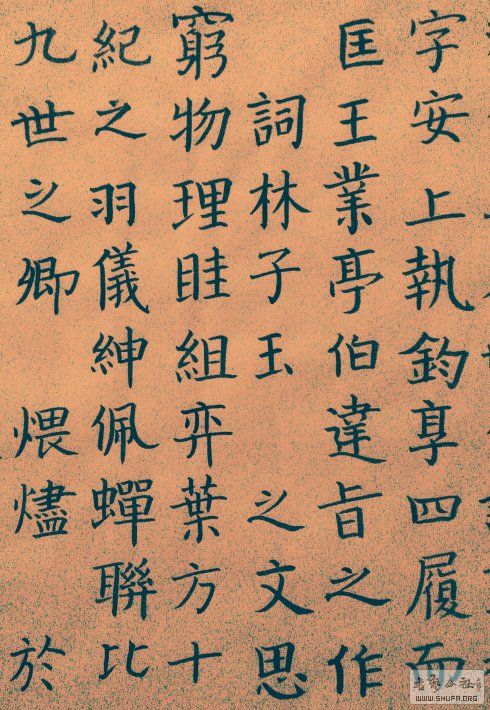 字安上執鈞享四履而
匡王業亭伯違旨之作
詞林子玉 之文思
窮物理眭組弈葉方十
紀之羽儀紳佩蟬聯比
九世之卿 煨燼 於
WWW.SHUFA.ORG